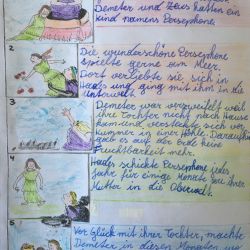 Demeter und Zeus hatten ein
Kind namens Persephone.
2.
Die wunderschöne Persephone
spielte gerne am Meer.
Dort verliebte sie sich in
Hades und ging mit ihm in die
Unterwelt.
3.
Demeter war verzweifelt weil
ihre Tochter nicht nach Hause
kam und versteckte sich vor
Kummer in einer Höhle. Daraufhin
gab es auf der Erde keine
Fruchtbarkeit mehr.
4.
Hades schickte Persephone jedes
Jahr für einige Monate zu ihrer
Mutter in die Oberwelt.
5.
Vor Glück mit ihrer Tochter, machte
Demeter in diesen Monaten